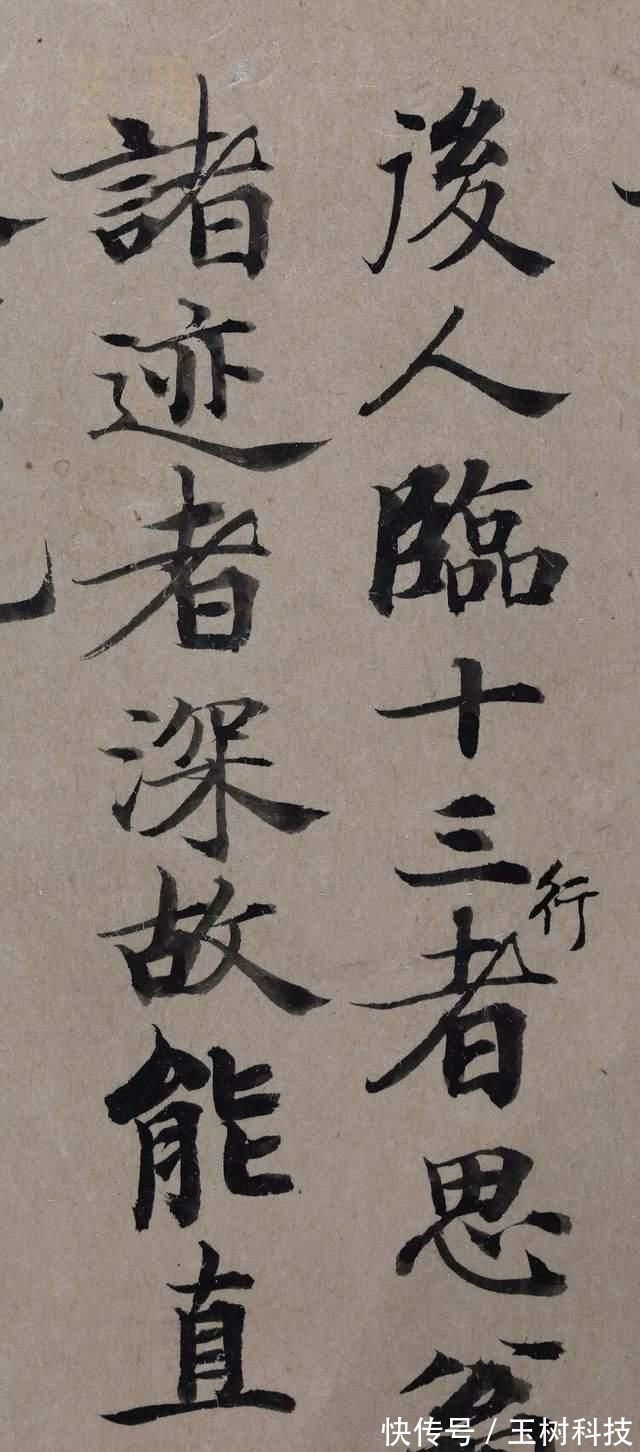 後人臨十三行者思翁
諸迹者深故能直
快传号/玉树科技